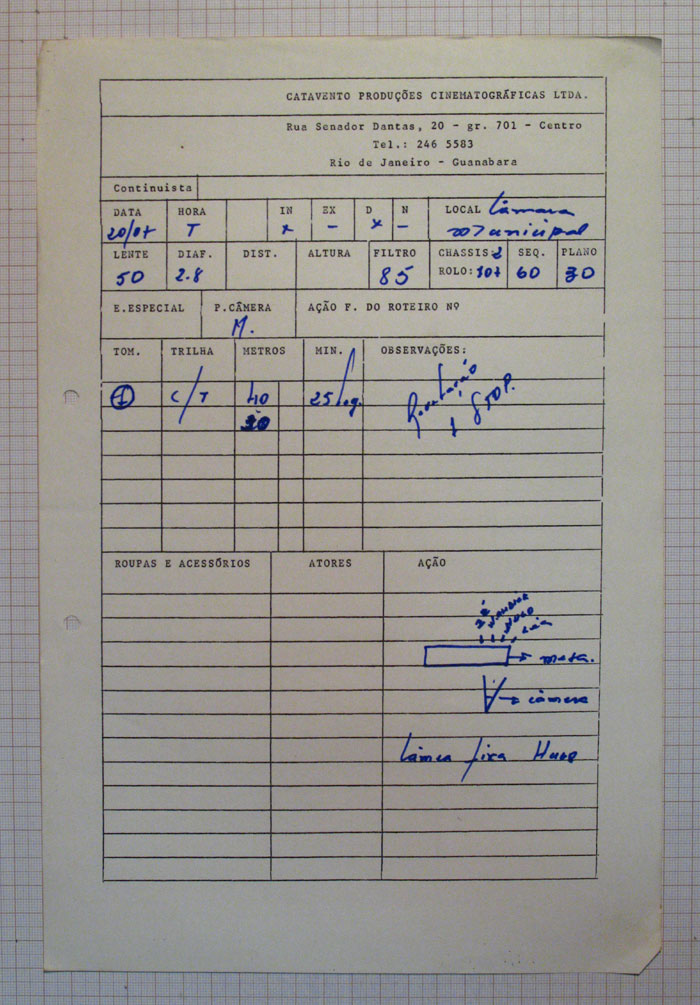 CATAVENTO PRODUÇÕES CINEMATOGRÁFICAS LTDA.
Rua Senador Dantas, 20 - gr. 701 - Centro
Tel.: 246 5583
Rio de Janeiro - Guanabara
Continuista
DATA HORA IN EX D N LOCAL Câmara
20/07 T x - x - Municipal
LENTE DIAF. DIST. ALTURA FILTRO CHASSIS: SEQ. PLANO
50 2.8 85 ROLO: 107 60 30
E.ESPECIAL P.CÂMERA AÇÃO F. DO ROTEIRO Nº
M.
TOM. TRILHA METROS MIN. OBSERVAÇÕES:
1 C/T 40 25 seg.
1 STOP.
ROUPAS E ACESSÓRIOS ATORES AÇÃO
mesa.
câmera
fixa Hugo